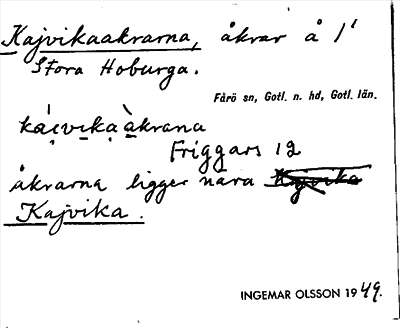 Kajvikaakrarna, åkrar å 1/
Stora Hoburga.
Fårö sn, Gotl. n. hd, Gotl. län.
káivikaàkrana
Friggars 12
åkrarna ligger nära Kajvika
Kajvika.
INGEMAR OLSSON 1949.